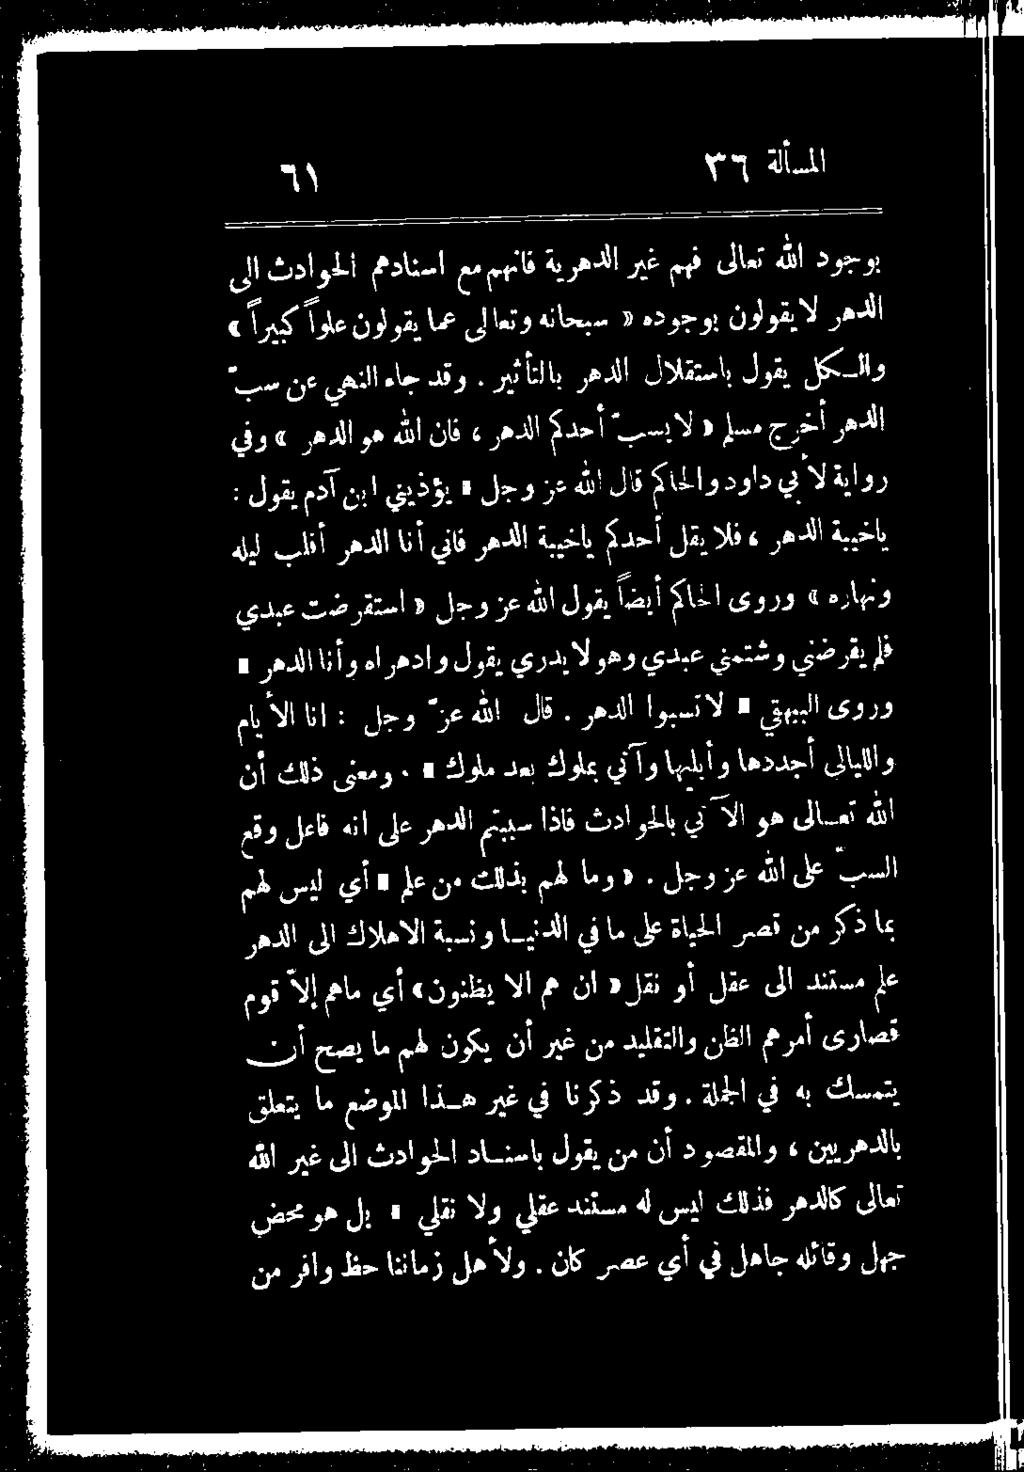 المسألة ٣٦ ٦١
بوجود الله تعالى فهم غير الدهرية فانهم مع اسنادهم الحوادث الى
الدهر لا يقولون بوجوده « سبحانه وتعالى عما يقولون علواً كبيراً »
والـكل يقول باستقلال الدهر بالتأثير . وقد جاء النهي عن سبّ
الدهر أخرج مسلم « لا يسبّ أحدكم الدهر ، فان الله هو الدهر » وفي
رواية لأبي داود والحاكم قال الله عز وجل « يؤذيني ابن آدم يقول :
ياخيبة الدهر ، فلا يقل أحدكم ياخيبة الدهر فاني أنا الدهر أقلب ليله
ونهاره » وروى الحاكم أيضاً يقول الله عز وجل « استقرضت عبدي
فلم يقرضني وشتمني عبدي وهو لا يدري يقول وادهراه وأنا الدهر »
وروى البيهقي « لا تسبوا الدهر . قال الله عزّ وجل : انا الأيام
والليالى أجددها وأبليها وآتي بملوك بعد ملوك » . ومعنى ذلك أن
الله تعـالى هو الآتي بالحوادث فاذا سببتم الدهر على انه فاعل وقع
السبّ على الله عز وجل . « وما لهم بذلك من علم » أي ليس لهم
بما ذكر من قصر الحياة على ما في الدنيـا ونسبة الاهلاك الى الدهر
علم مستند الى عقل أو نقل « ان هم الا يظنون » أي ماهم إلاّ قوم
قصارى أمرهم الظن والتقليد من غير أن يكون لهم ما يصح أن
يتمسك به في الجملة . وقد ذكرنا في غير هـذا الموضع ما يتعلق
بالدهريين ، والمقصود أن من يقول باسنـاد الحوادث الى غير الله
تعالى كالدهر فذلك ليس له مستند عقلي ولا نقلي » بل هو محض
جهل وقائله جاهل في أي عصر كان . ولأهل زماننا حظ وافر من